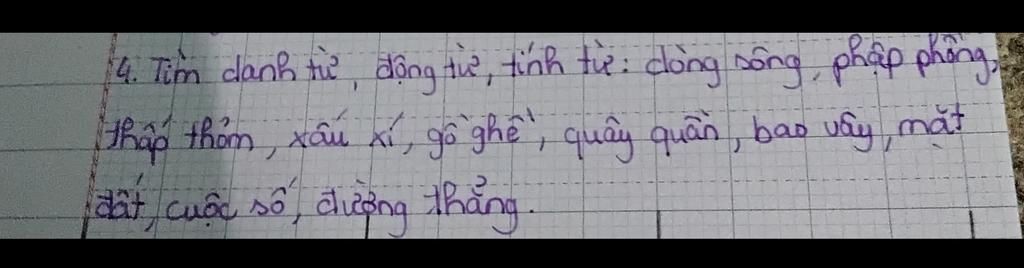 4. Tìm danh từ, động từ, tính từ: dòng sông, phập phồng,
thấp thỏm, xấu xí, gồ ghề, quây quần, bao vây, mặt
đất, cuộc số, đường thẳng.